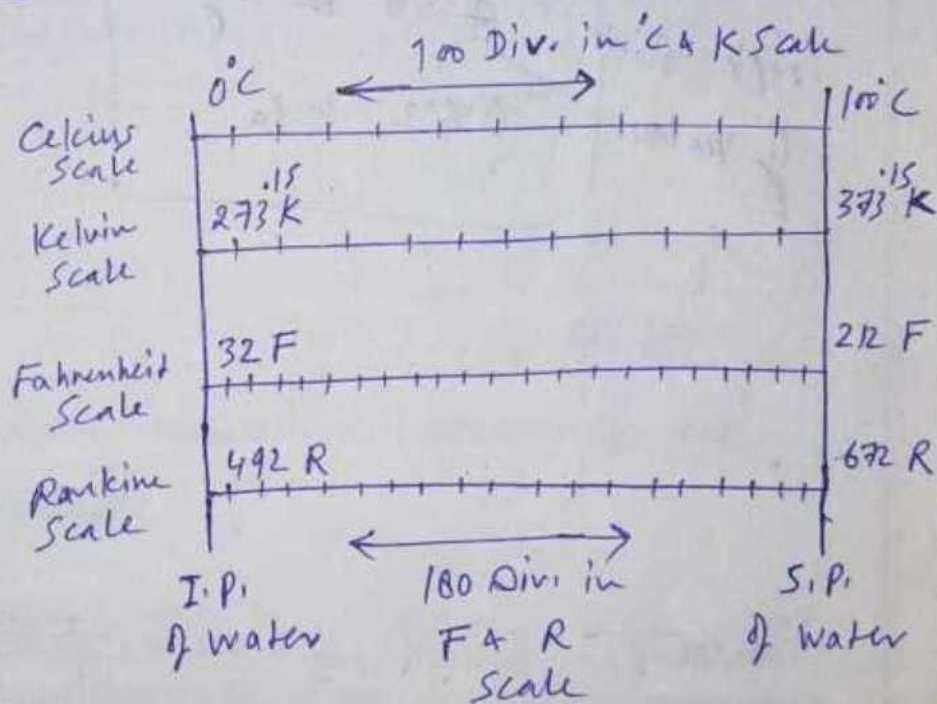 100 Div. in °C & K Scale
0°C
100°C
Celcius
Scale
273.15 K
373.15 K
Kelvin
Scale
32 F
212 F
Fahrenheit
Scale
492 R
672 R
Rankine
Scale
I.P.
of water
180 Div. in
F & R
Scale
S.P.
of water